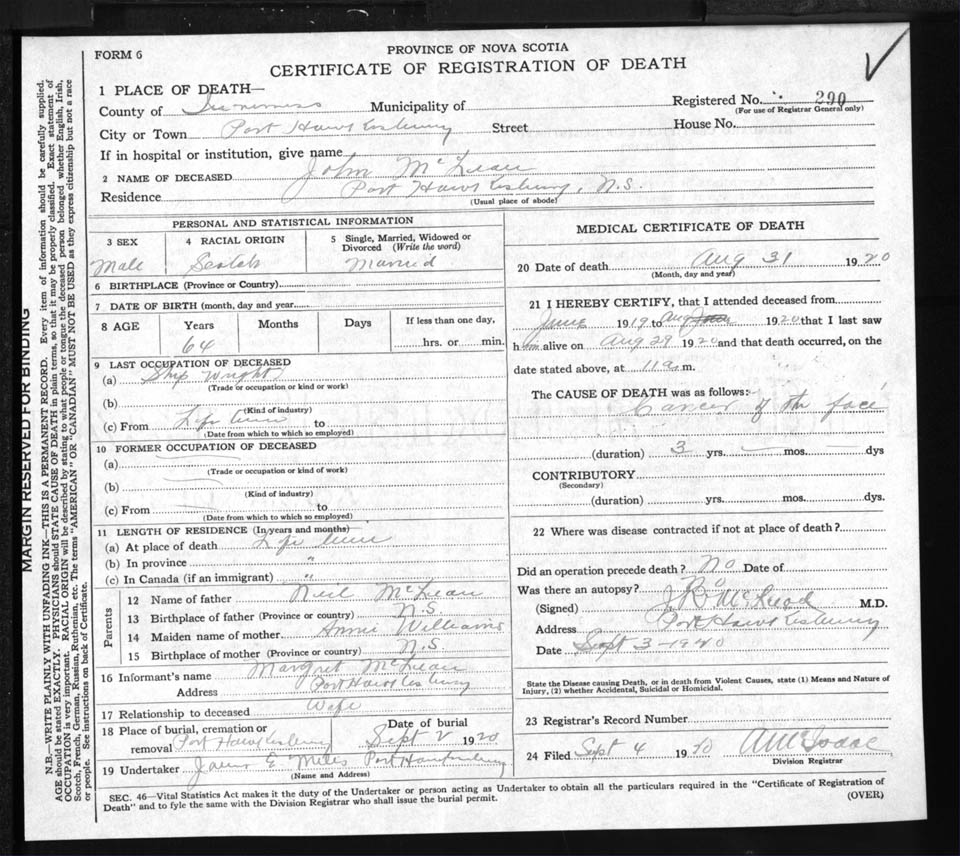 FORM 6
PROVINCE OF NOVA SCOTIA
CERTIFICATE OF REGISTRATION OF DEATH
1 PLACE OF DEATH—
County of Inverness Municipality of Registered No. 290
(For use of Registrar General only)
City or Town Port Hawkesbury Street House No.
If in hospital or institution, give name
2 NAME OF DECEASED John McLean
Residence Port Hawkesbury, N.S.
(Usual place of abode)
PERSONAL AND STATISTICAL INFORMATION
3 SEX 4 RACIAL ORIGIN 5 Single, Married, Widowed or Divorced (Write the word)
Male Scotch Married
6 BIRTHPLACE (Province or Country)
7 DATE OF BIRTH (month, day and year
8 AGE Years Months Days If less than one day,
64 hrs. or min.
9 LAST OCCUPATION OF DECEASED
(a) Ship Wright
(Trade or occupation or kind or work)
(b)
(Kind of industry)
(c) From Life time to
(Date from which to which so employed)
10 FORMER OCCUPATION OF DECEASED
(a)
(Trade or occupation or kind of work)
(b)
(Kind of industry)
(c) From to
(Date from which to which so employed)
11 LENGTH OF RESIDENCE (In years and months)
(a) At place of death Life time
(b) In province "
(c) In Canada (if an immigrant) "
Parents
12 Name of father Neil McLean
13 Birthplace of father (Province or country) N.S.
14 Maiden name of mother Annie Williams
15 Birthplace of mother (Province or country) N.S.
16 Informant's name Margret McLean
Address Port Hawkesbury
17 Relationship to deceased Wife
18 Place of burial, cremation or Date of burial
removal Port Hawkesbury Sept 2 1920
19 Undertaker James E. Miles Port Hawkesbury
(Name and Address)
MEDICAL CERTIFICATE OF DEATH
20 Date of death Aug 31 1920
(Month, day and year)
21 I HEREBY CERTIFY, that I attended deceased from
June 1919 to Aug 1920 that I last saw
him alive on Aug 29 1920 and that death occurred, on the
date stated above, at 11 a m.
The CAUSE OF DEATH was as follows:
Cancer of the face
(duration) 3 yrs. — mos. — dys
CONTRIBUTORY
(Secondary)
(duration) yrs. mos. dys.
22 Where was disease contracted if not at place of death?
Did an operation precede death? No Date of
Was there an autopsy? No
(Signed) J B McLeod M.D.
Address Port Hawkesbury
Date Sept 3-1920
State the Disease causing Death, or in death from Violent Causes, state (1) Means and Nature of
Injury, (2) whether Accidental, Suicidal or Homicidal.
23 Registrar's Record Number
24 Filed Sept 4 1920 A McIsaac
Division Registrar
SEC. 46—Vital Statistics Act makes it the duty of the Undertaker or person acting as Undertaker to obtain all the particulars required in the "Certificate of Registration of
Death" and to fyle the same with the Division Registrar who shall issue the burial permit. (OVER)
MARGIN RESERVED FOR BINDING
N.B.—WRITE PLAINLY WITH UNFADING INK—THIS IS A PERMANENT RECORD. Every item of information should be carefully supplied.
AGE should be stated EXACTLY. PHYSICIANS should STATE CAUSE OF DEATH in plain terms, so that it may be properly classified. Exact statement of
OCCUPATION is very important. RACIAL ORIGIN will be described by stating to what people or tongue the deceased person belonged whether English, Irish,
Scotch, French, German, Russian, Ruthenian, etc. The terms "AMERICAN" or "CANADIAN" MUST NOT BE USED as they express citizenship but not a race
or people. See instructions on back of Certificate.